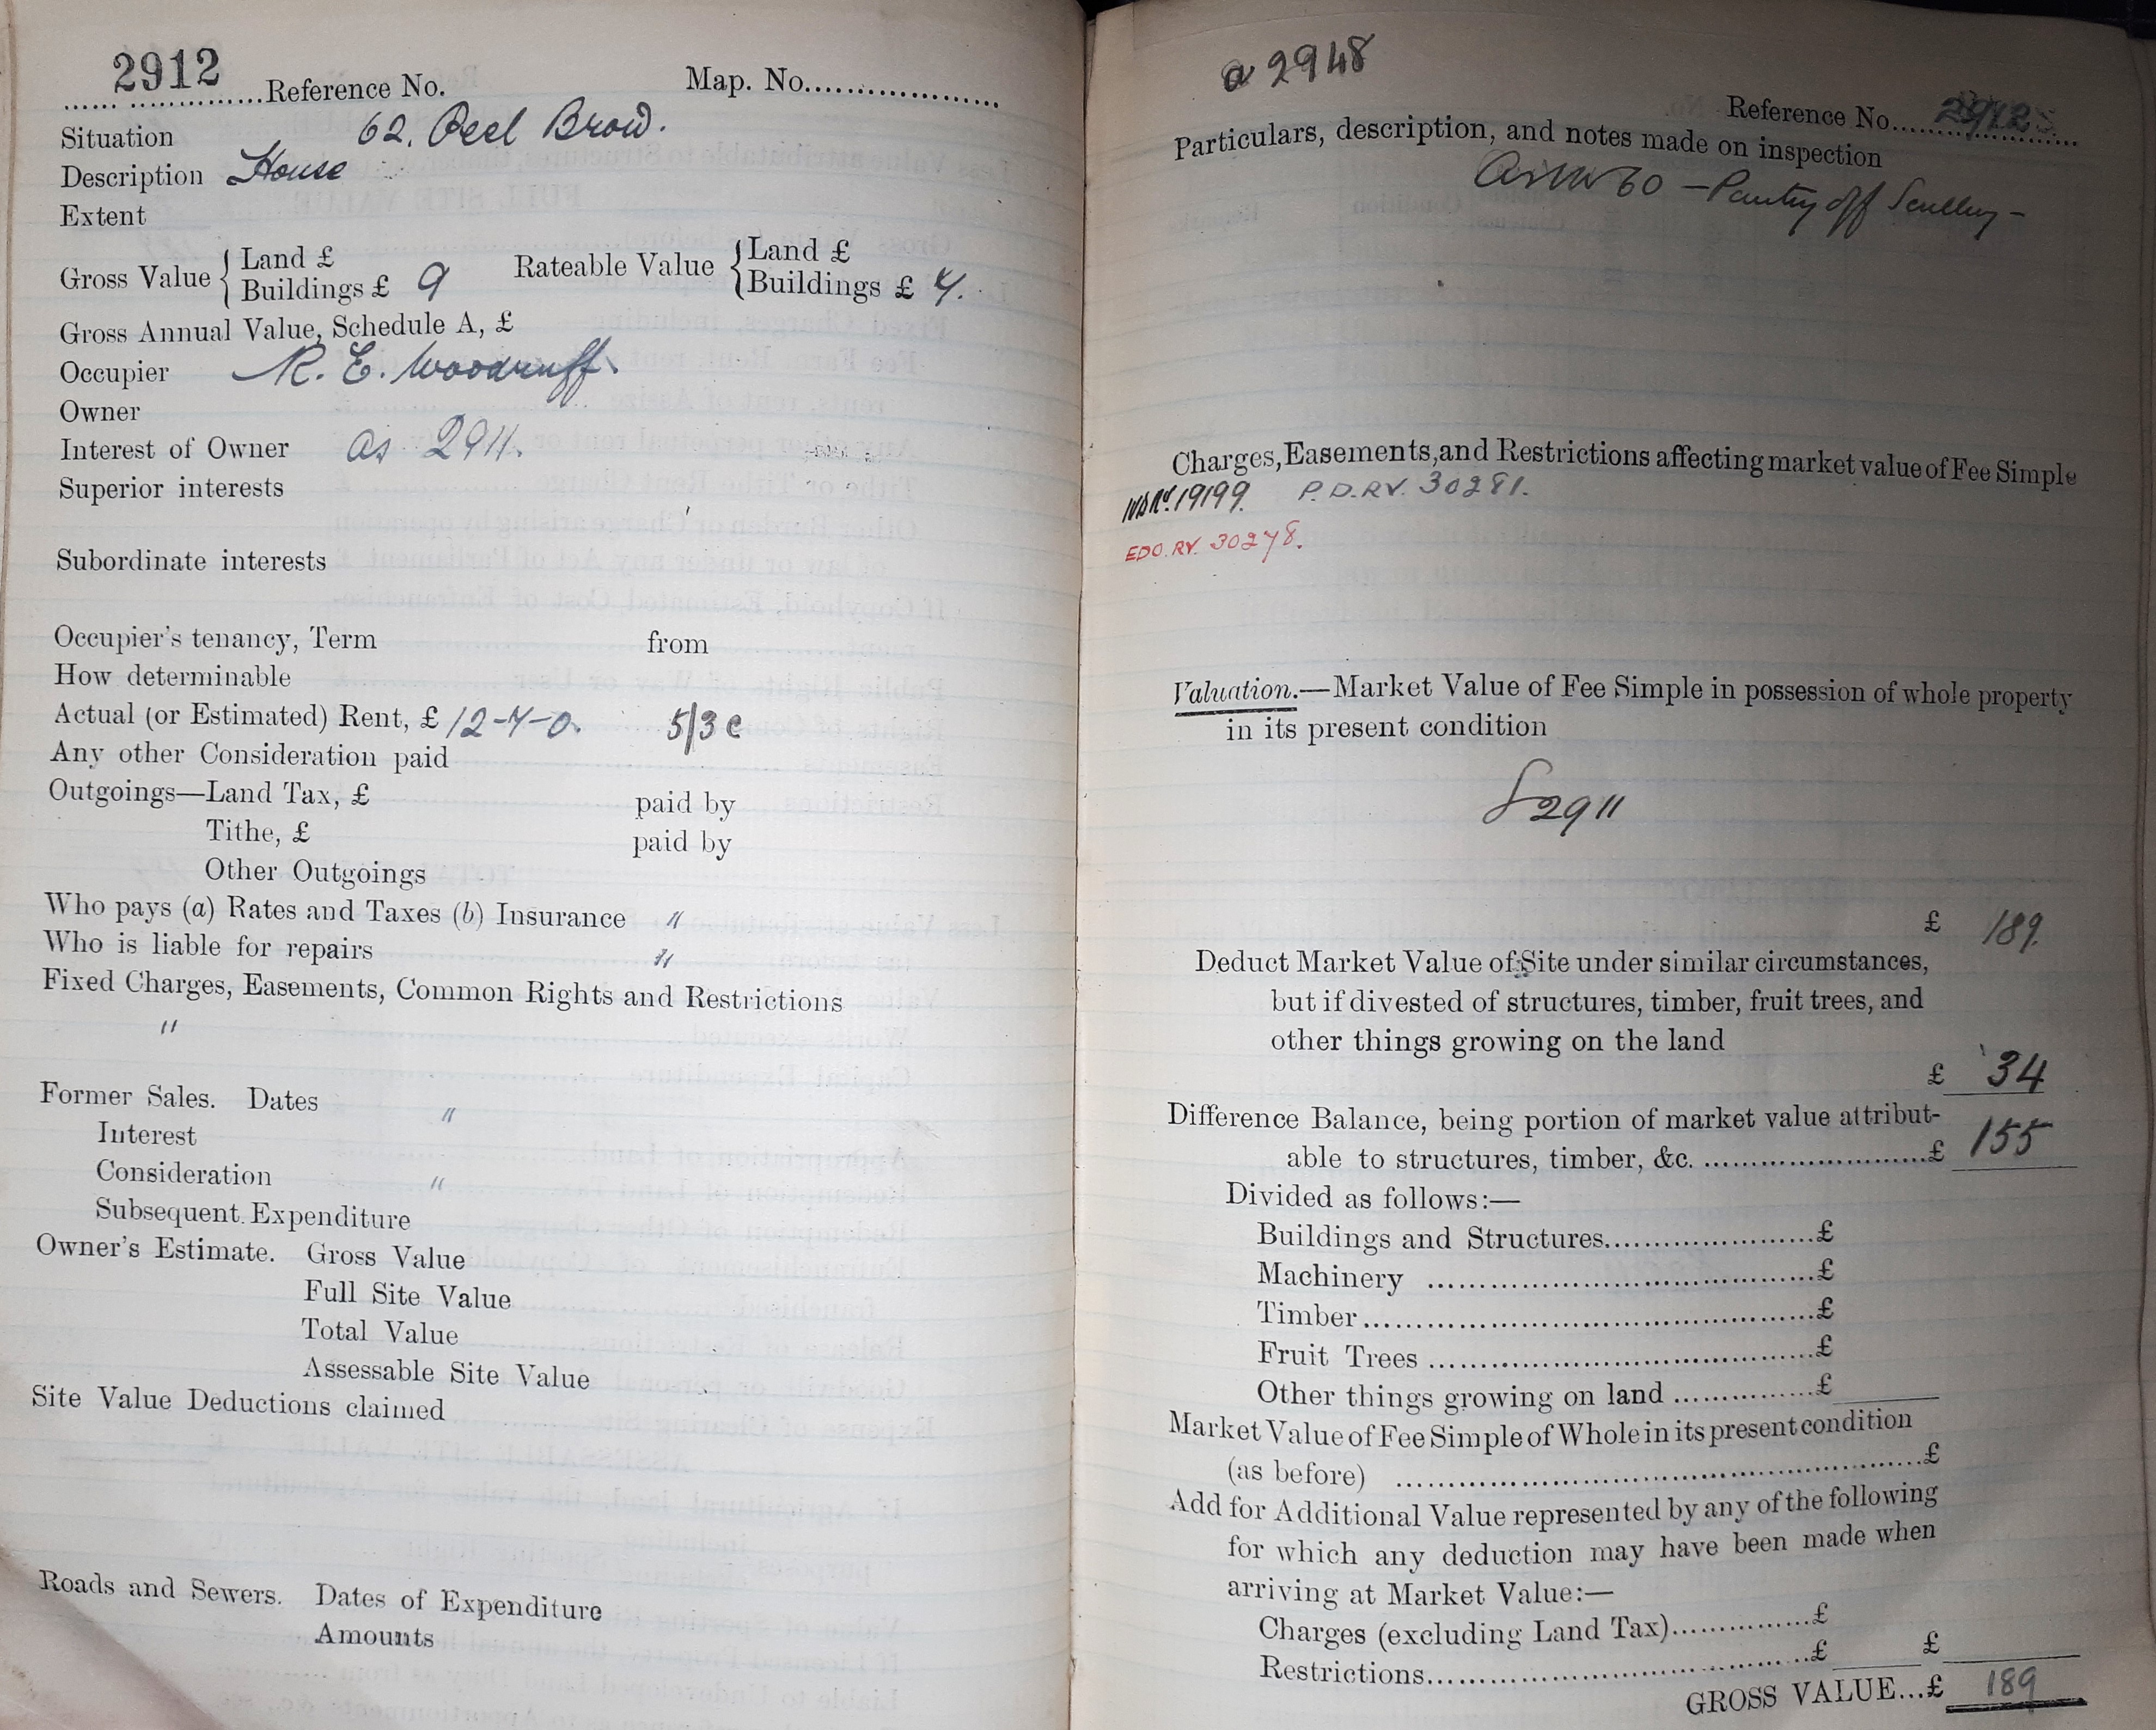 2912
Reference No. Map. No.
Situation 62. Peel Brow.
Description House
Extent
Gross Value { Land £
Buildings £ 9
Rateable Value { Land £
Buildings £ 7.
Gross Annual Value, Schedule A, £
Occupier R. E. Woodruff.
Owner
Interest of Owner as 2911.
Superior interests
Subordinate interests
Occupier's tenancy, Term from
How determinable
Actual (or Estimated) Rent, £ 12-7-0. 5/3 c
Any other Consideration paid
Outgoings—Land Tax, £ paid by
Tithe, £ paid by
Other Outgoings
Who pays (a) Rates and Taxes (b) Insurance "
Who is liable for repairs "
Fixed Charges, Easements, Common Rights and Restrictions
"
Former Sales. Dates "
Interest
Consideration "
Subsequent Expenditure
Owner's Estimate. Gross Value
Full Site Value
Total Value
Assessable Site Value
Site Value Deductions claimed
Roads and Sewers. Dates of Expenditure
Amounts
a 2948
Reference No. 2912
Particulars, description, and notes made on inspection
As No 60 — Pantry off Scullery —
Charges, Easements, and Restrictions affecting market value of Fee Simple
19199. P.D.RV. 30281.
EDO. RV. 30278.
Valuation.—Market Value of Fee Simple in possession of whole property
in its present condition
2911
£ 189.
Deduct Market Value of Site under similar circumstances,
but if divested of structures, timber, fruit trees, and
other things growing on the land
£ 34
Difference Balance, being portion of market value attribut-
able to structures, timber, &c. £ 155
Divided as follows:—
Buildings and Structures £
Machinery £
Timber £
Fruit Trees £
Other things growing on land £
Market Value of Fee Simple of Whole in its present condition
(as before) £
Add for Additional Value represented by any of the following
for which any deduction may have been made when
arriving at Market Value:—
Charges (excluding Land Tax) £
Restrictions £ £
GROSS VALUE...£ 189